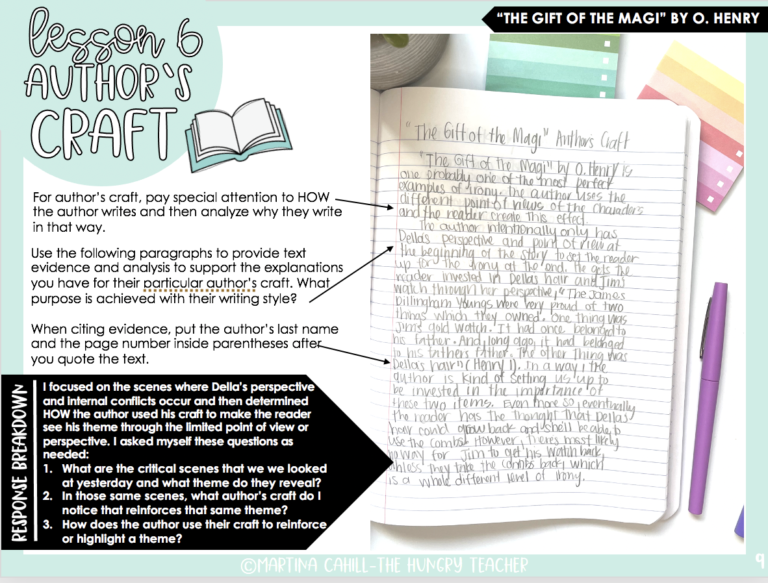 "THE GIFT OF THE MAGI" BY O. HENRY
lesson 6
AUTHOR'S
CRAFT
For author's craft, pay special attention to HOW
the author writes and then analyze why they write
in that way.
Use the following paragraphs to provide text
evidence and analysis to support the explanations
you have for their particular author's craft. What
purpose is achieved with their writing style?
When citing evidence, put the author's last name
and the page number inside parentheses after
you quote the text.
RESPONSE BREAKDOWN
I focused on the scenes where Della's perspective
and internal conflicts occur and then determined
HOW the author used his craft to make the reader
see his theme through the limited point of view or
perspective. I asked myself these questions as
needed:
1. What are the critical scenes that we we looked
at yesterday and what theme do they reveal?
2. In those same scenes, what author's craft do I
notice that reinforces that same theme?
3. How does the author use their craft to reinforce
or highlight a theme?
"The Gift of the Magi" Author's Craft
"The Gift of the Magi" by O. Henry is
one probably one of the most perfect
examples of irony. The author uses the
different point of views of the characters
and the reader create this effect.
The author intentionally only has
Della's perspective and point of view at
the beginning of the story to set the reader
up for the irony at the end. He gets the
reader invested in Della's hair and Jim's
watch through her perspective, "The James
Dillingham Youngs were very proud of two
things which they owned. One thing was
Jim's gold watch. It had once belonged to
his father. And, long ago, it had belonged
to his father's father. The other thing was
Della's hair" (Henry 1). In a way, the
author is kind of setting us up to
be invested in the importance of
these two items. Even more so, eventually
the reader has the thought that Della's
hair could grow back and she'll be able to
use the combs. However, there's most likely
no way for Jim to get his watch back,
unless they take the combs back, which
is a whole different level of irony.
©MARTINA CAHILL-THE HUNGRY TEACHER
9